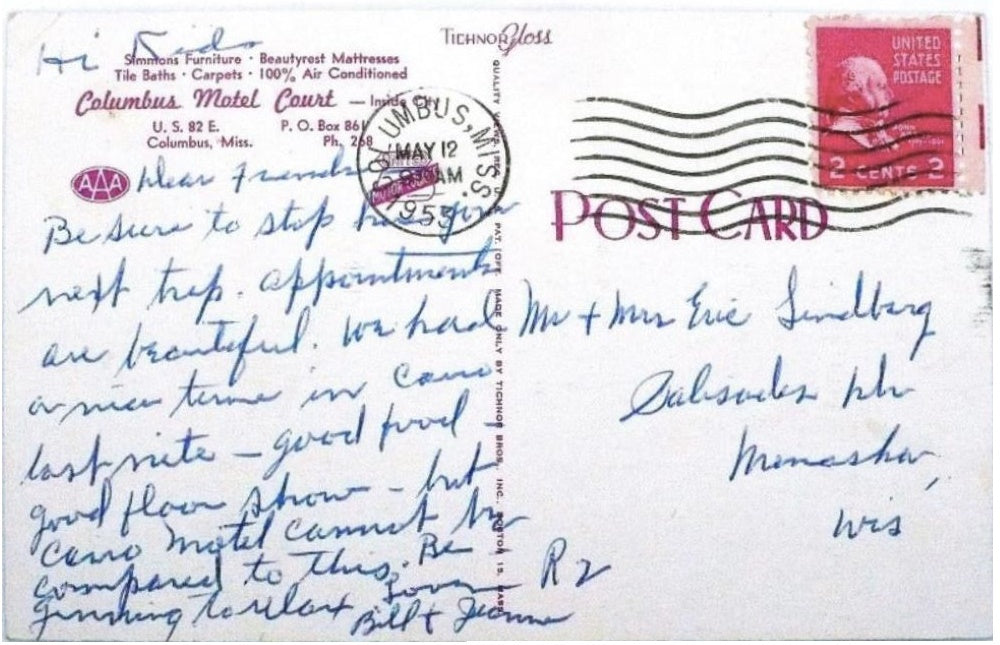 Hi Kids
Simmons Furniture · Beautyrest Mattresses
Tile Baths · Carpets · 100% Air Conditioned
Columbus Motel Court — Inside City
U. S. 82 E. P. O. Box 861
Columbus, Miss. Ph. 268
AAA
Dear Friends
Be sure to stop here your
next trip. appointments
are beautiful. We had
a nice time in Cairo
last nite — good food —
good floor show — but
Cairo Motel cannot be
compared to this. Be
ginning to relax Love
Bill & Jeanne
TICHNOR Gloss
QUALITY VIEWS, REG. U. S. PAT. OFF. MADE ONLY BY TICHNOR BROS., INC., BOSTON 15, MASS.
COLUMBUS, MISS.
MAY 12
AM
1955
UNITED
STATES
POSTAGE
JOHN
2 CENTS 2
POST CARD
Mr + Mrs Eric Lindberg
Palisades
Menasha,
Wis
R 2